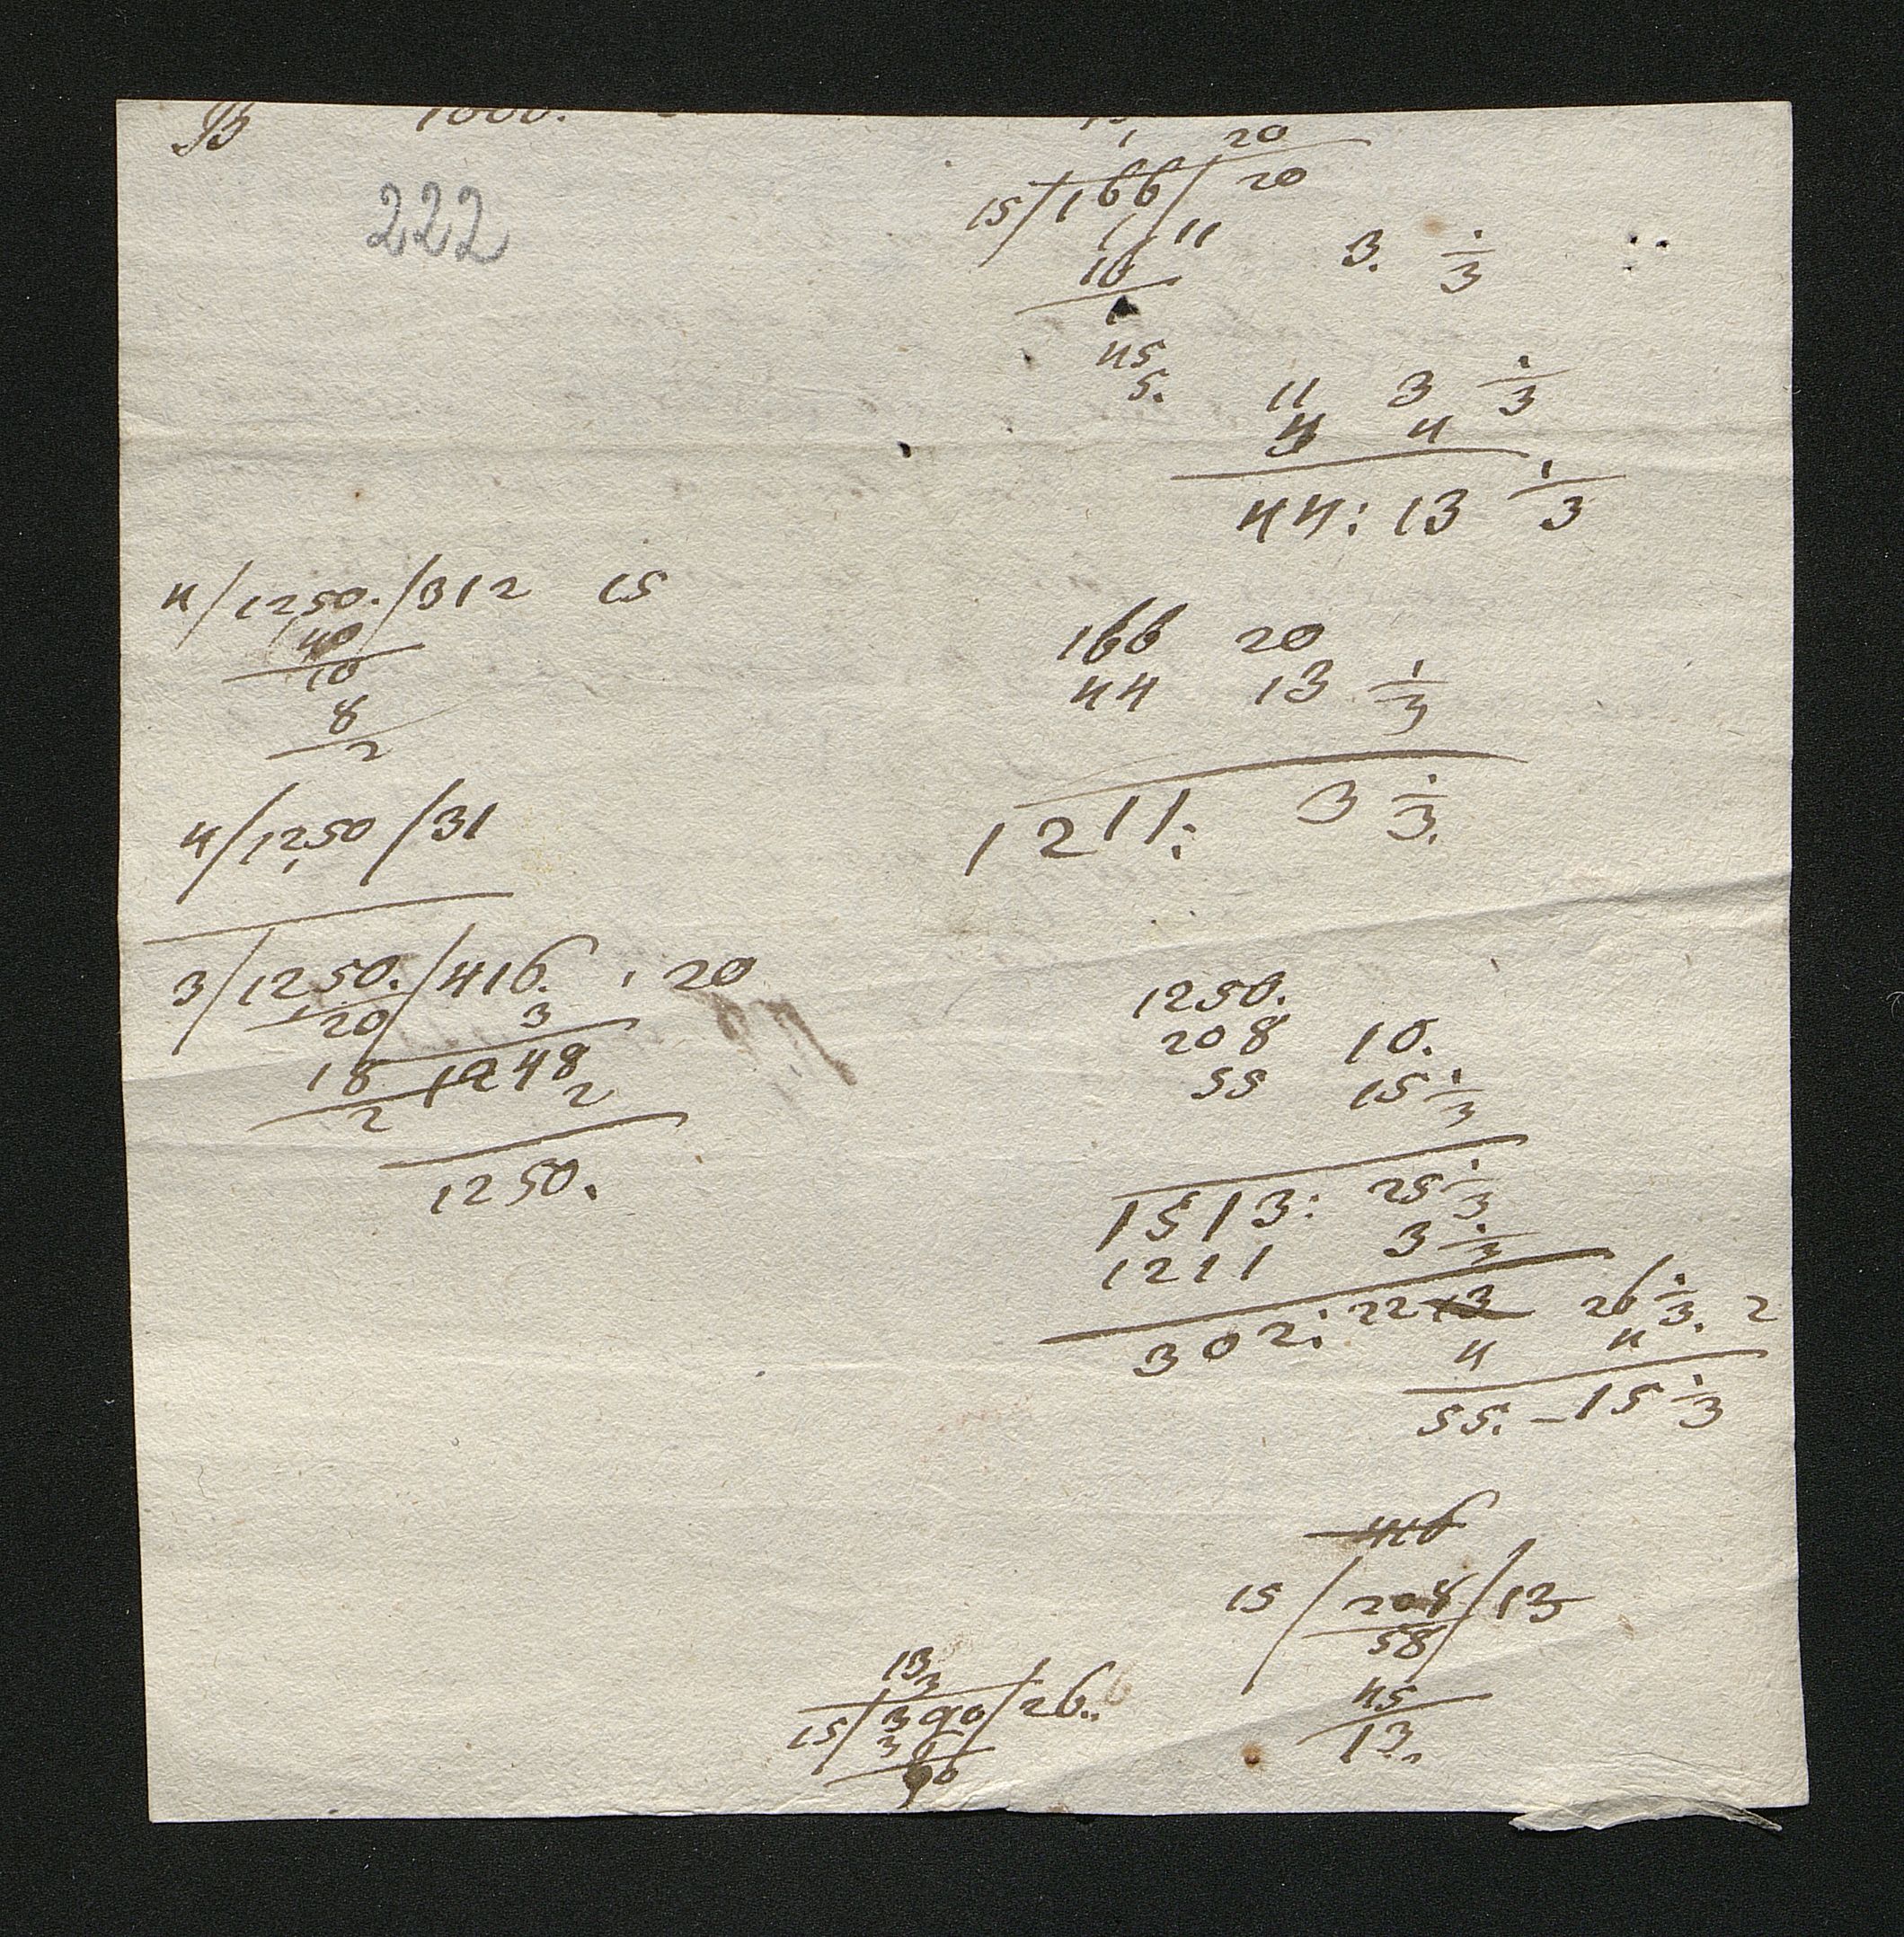 B 1000.
222
4/1250./312 15
40
10
8
2
4/1250/31
3/1250./416. 20
120 3
18 1248
2 2
1250.
1 20
15/166/20
11
10
1
45
5.
3. 1/3
11 3 1/3
4 4
44: 13 1/3
166 20
44 13 1/3
1211: 3 1/3.
1250.
208 10.
55 15 1/3
1513: 25 1/3
1211 3 1/3
302: 22 13 26 1/3. 2
4 4
55. - 15 1/3
416
15/208/13
58
45
13.
13
15/390/26..
30
90